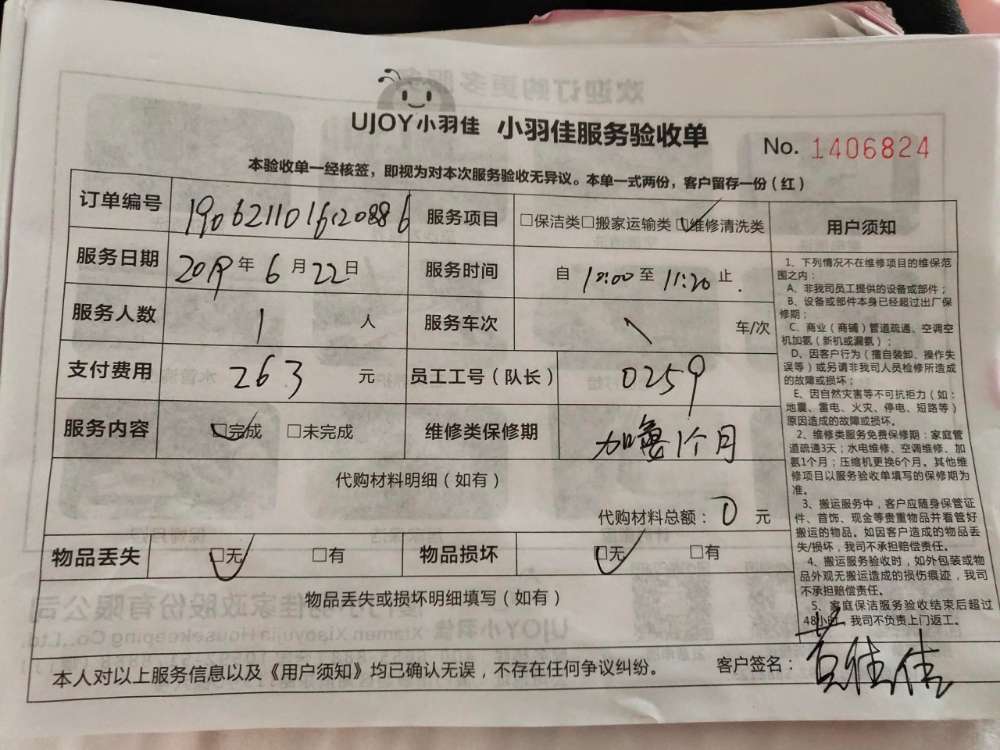 UJOY小羽佳 小羽佳服务验收单
No. 1406824
本验收单一经核签，即视为对本次服务验收无异议。本单一式两份，客户留存一份（红）
订单编号 190621101612088 6 服务项目 □保洁类□搬家运输类□维修清洗类
服务日期 2019年6月22日 服务时间 自10:00至11:20止.
服务人数 1 人 服务车次 \ 车/次
支付费用 263 元 员工工号（队长） 0259
服务内容 □完成 □未完成 维修类保修期 加氨1个月
代购材料明细（如有）
代购材料总额：0 元
物品丢失 □无 □有 物品损坏 □无 □有
物品丢失或损坏明细填写（如有）
本人对以上服务信息以及《用户须知》均已确认无误，不存在任何争议纠纷。
客户签名：
用户须知
1、下列情况不在维修项目的维保范
围之内：
A、非我司员工提供的设备或部件；
B、设备或部件本身已经超过出厂保
修期；
C、商业（商铺）管道疏通、空调空
机加氨（新机或漏氨）；
D、因客户行为（擅自装卸、操作失
误等）或另请非我司人员检修所造成
的故障或损坏；
E、因自然灾害等不可抗拒力（如：
地震、雷电、火灾、停电、短路等）
原因造成的故障或损坏。
2、维修类服务免费保修期：家庭管
道疏通3天；水电维修、空调维修、加
氨1个月；压缩机更换6个月。其他维
修项目以服务验收单填写的保修期为
准。
3、搬运服务中，客户应随身保管证
件、首饰、现金等贵重物品并看管好
搬运的物品。如因客户造成的物品丢
失/损坏，我司不承担赔偿责任。
4、搬运服务验收时，如外包装或物
品外观无搬运造成的损伤痕迹，我司
不承担赔偿责任。
5、家庭保洁服务验收结束后超过
48小时，我司不负责上门返工。